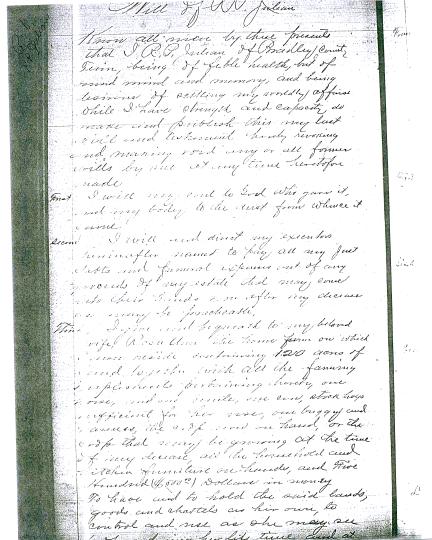 Will of R. Julian
Know all men by these presents
that I R.P. Julian of Bradley County
Tenn, being of feble health, but of
mind and memory, and being
desirous of settling my worldly affairs
while I have strength and capacity, do
make and publish this my last
will and testament hereby revoking
and making void any or all former
wills by me at any time heretofore
made
I will my soul to God who gave it,
and my body to the dust from whence it
I will and direct my executors
hereinafter named to pay all my Just
debts and funeral expenses out of any
of my estate that may come
into their hands soon after my decease
as may be practicable.
I give and bequeath to my beloved
wife the home farm on which
I now reside containing 120 acres of
land together with all the farming
implements pertaining hereto, one
one cow, stock hogs
sufficient for her use, one buggy and
harness, the crop now on hand, or the
crop that may be growing at the time
of my decease, all the household and
kitchen furniture on hands, and Five
Hundred Dollars in money
To have and to hold the said lands,
goods and chattels as her own, to
control and use as she may see